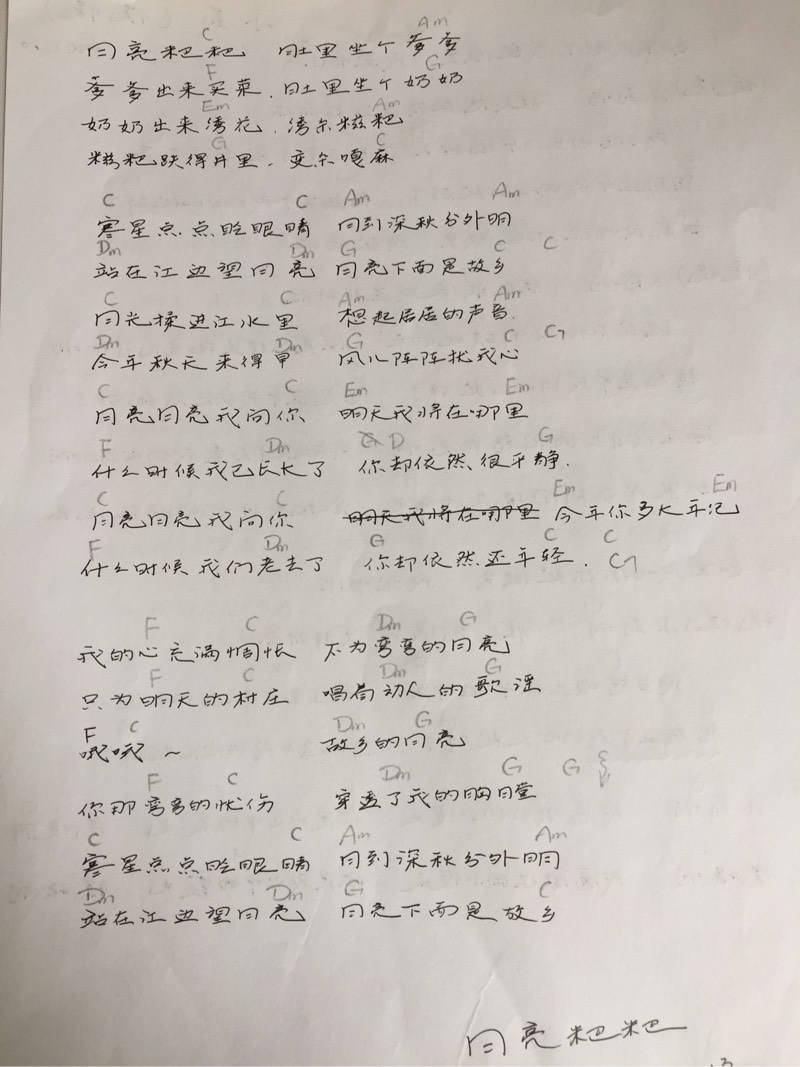 C Am
月亮粑粑 肚里坐个爹爹
F G
爹爹出来买菜.肚里坐个奶奶
Em Am
奶奶出来绣花.绣杂糍粑
G C
糍粑跌得井里.变杂嘎麻
C C Am Am
寒星点点眨眼睛 月到深秋分外明
Dm Dm G C C
站在江边望月亮 月亮下面是故乡
C C Am Am
月光揉进江水里 想起居居的声音.
Dm Dm G C C7
今年秋天来得早 风儿阵阵扰我心
C C Em Em
月亮月亮我问你 明天我将在哪里
F Dm G D G
什么时候我已长大了 你却依然、很平静.
C C Em Em
月亮月亮我问你 明天我将在哪里 今年你多大年纪
F Dm G C C
什么时候我们老去了 你却依然还年轻. C7
F C Dm G
我的心充满惆怅 不为弯弯的月亮
F C Dm G
只为明天的村庄 唱着动人的歌谣
F C Dm G
哦哦~ 故乡的月亮
F C Dm G G
你那弯弯的忧伤 穿透了我的胸膛
C C Am Am
寒星点点眨眼睛 月到深秋分外明
Dm Dm G C
站在江边望月亮 月亮下面是故乡
月亮粑粑